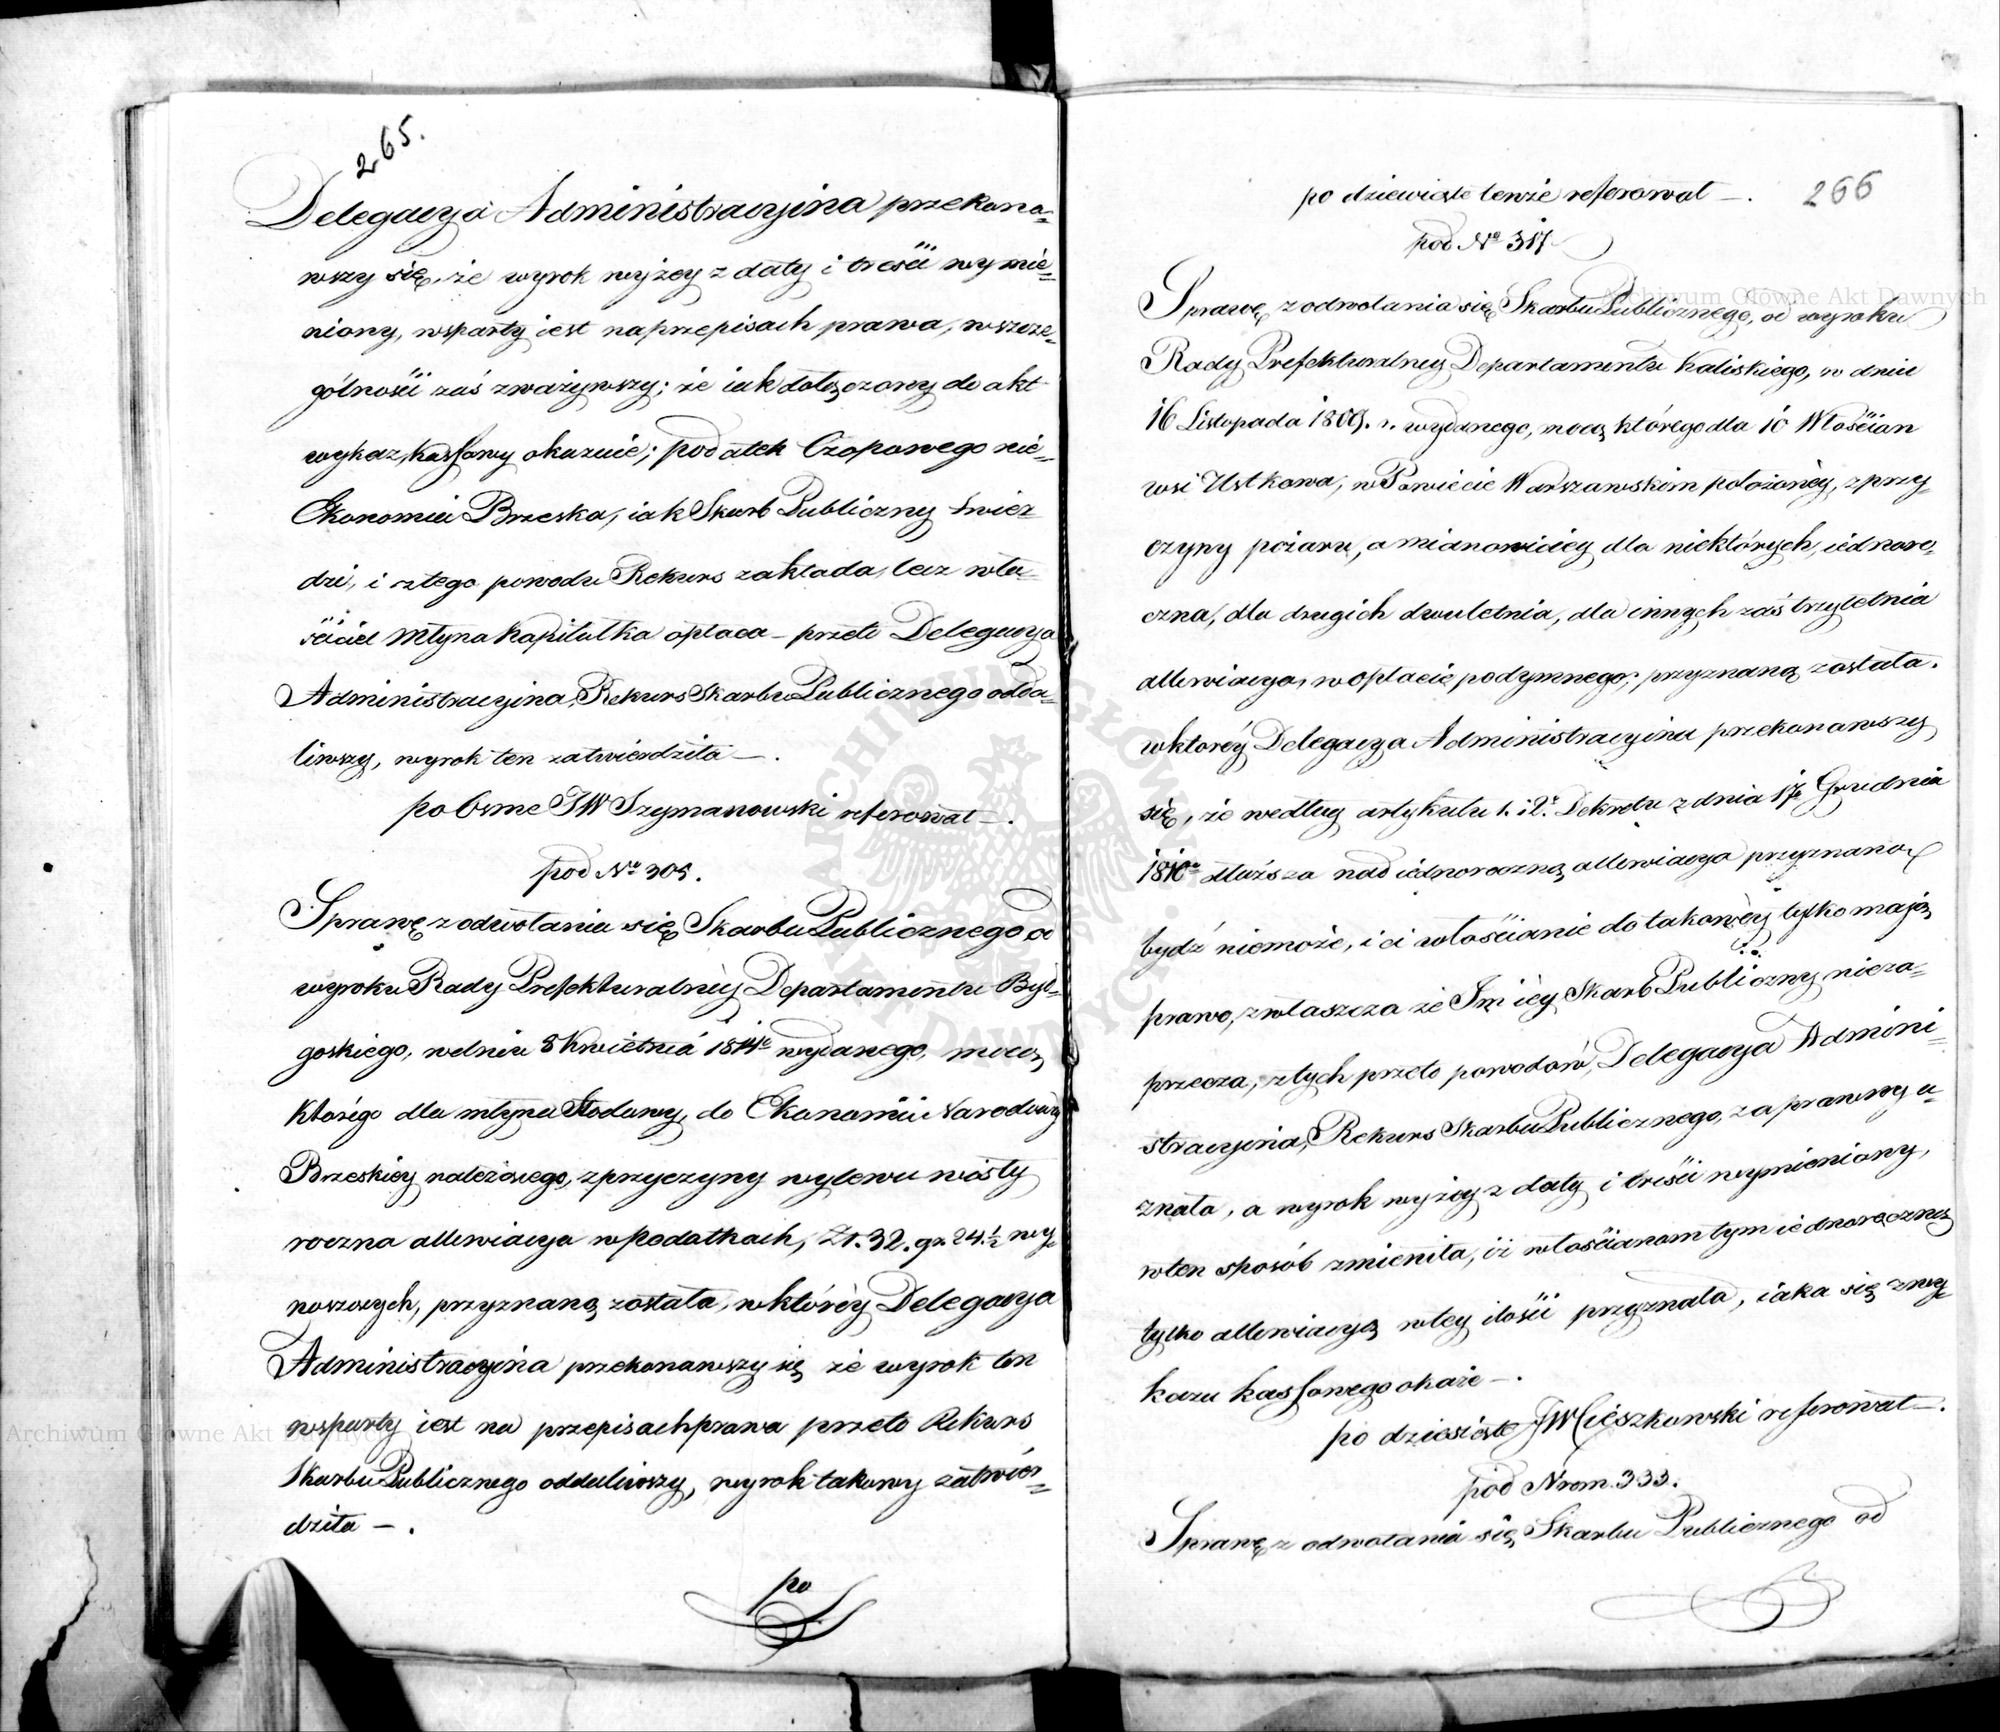 265.
Delegacya Administracyina przekona=
wszy się, że wyrok wyżey z daty i treści wymie=
niony, wsparty iest na przepisach prawa, wszcze=
gólności zaś zważywszy; że iak dołączony do akt
wykaz kassowy okazuie; podatek Czopowego nie=
Ekonomia Brzeska, iak Skarb Publiczny twier
dzi, i z tego powodu Rekurs zakłada, lecz wła=
ściciel Młyna Kapitułka opłaca — przeto Delegacya
Administracyina, Rekurs Skarbu Publicznego odda=
liwszy, wyrok ten zatwierdziła —.
po ósme JW Szymanowski referował —.
pod No 305.
Sprawę z odwołania się Skarbu Publicznego od
wyroku Rady Prefekturalnéy Departamentu Byd=
goskiego, w dniu 8 Kwietnia 1811o wydanego, mocą
którégo dla młyna Stodawy, do Ekonomii Narodowéy
Brzeskiéy należącego, z przyczyny wylewu wisły
roczna allewiacya w podatkach, Zł. 32. gr. 24 ½ wy=
noszących, przyznaną została, w któréy Delegacya
Administracyina przekonawszy się że wyrok ten
wsparty iest na przepisach prawa przeto Rekurs
Skarbu Publicznego oddaliwszy, wyrok takowy zatwier=
dziła —.
po
266
po dziewiąte tenże referował —.
pod No 317
Sprawę z odwołania się Skarbu Publicznego, od wyroku
Rady Prefekturalnéy Departamentu Kaliskiego, w dniu
16 Listopada 1809. r. wydanego, mocą którego dla 10 Włościan
wsi Ustkowa, w Powiecie Warszawskim położonéy, z przy=
czyny pożaru, a mianowiciéy dla niektórych, iednoro=
czna, dla drugich dwuletnia, dla innych zaś trzyletnia
allewiacya, w opłacie podymnego; przyznaną została.
w któréy Delegacya Administracyina przekonawszy
się, że według artykułu 1. i 2o. Dekretu z dnia 17o Grudnia
1810o dłuższa nad iednoroczną allewiacya przyznana
bydź niemoże, i ci włościanie do takowéy tylko maią
prawo, zwłaszcza że Im iéy Skarb Publiczny nieza=
przecza, z tych przeto powodów, Delegacya Admini=
stracyina, Rekurs Skarbu Publicznego, za prawny u=
znała, a wyrok wyżéy z daty i treści wymieniony,
w ten sposób zmieniła, iż włościanom tym iednoroczną
tylko allewiacyą w tey ilości przyznała, iaka się z wy=
kazu kassowego okaże —.
po dziesiąte JW Cieszkowski referował —.
pod Nrom. 333.
Sprawę z odwołania się Skarbu Publicznego od
Archiwum Główne Akt Dawnych
Archiwum Główne Akt Dawnych
ARCHIWUM GŁÓWNE AKT DAWNYCH